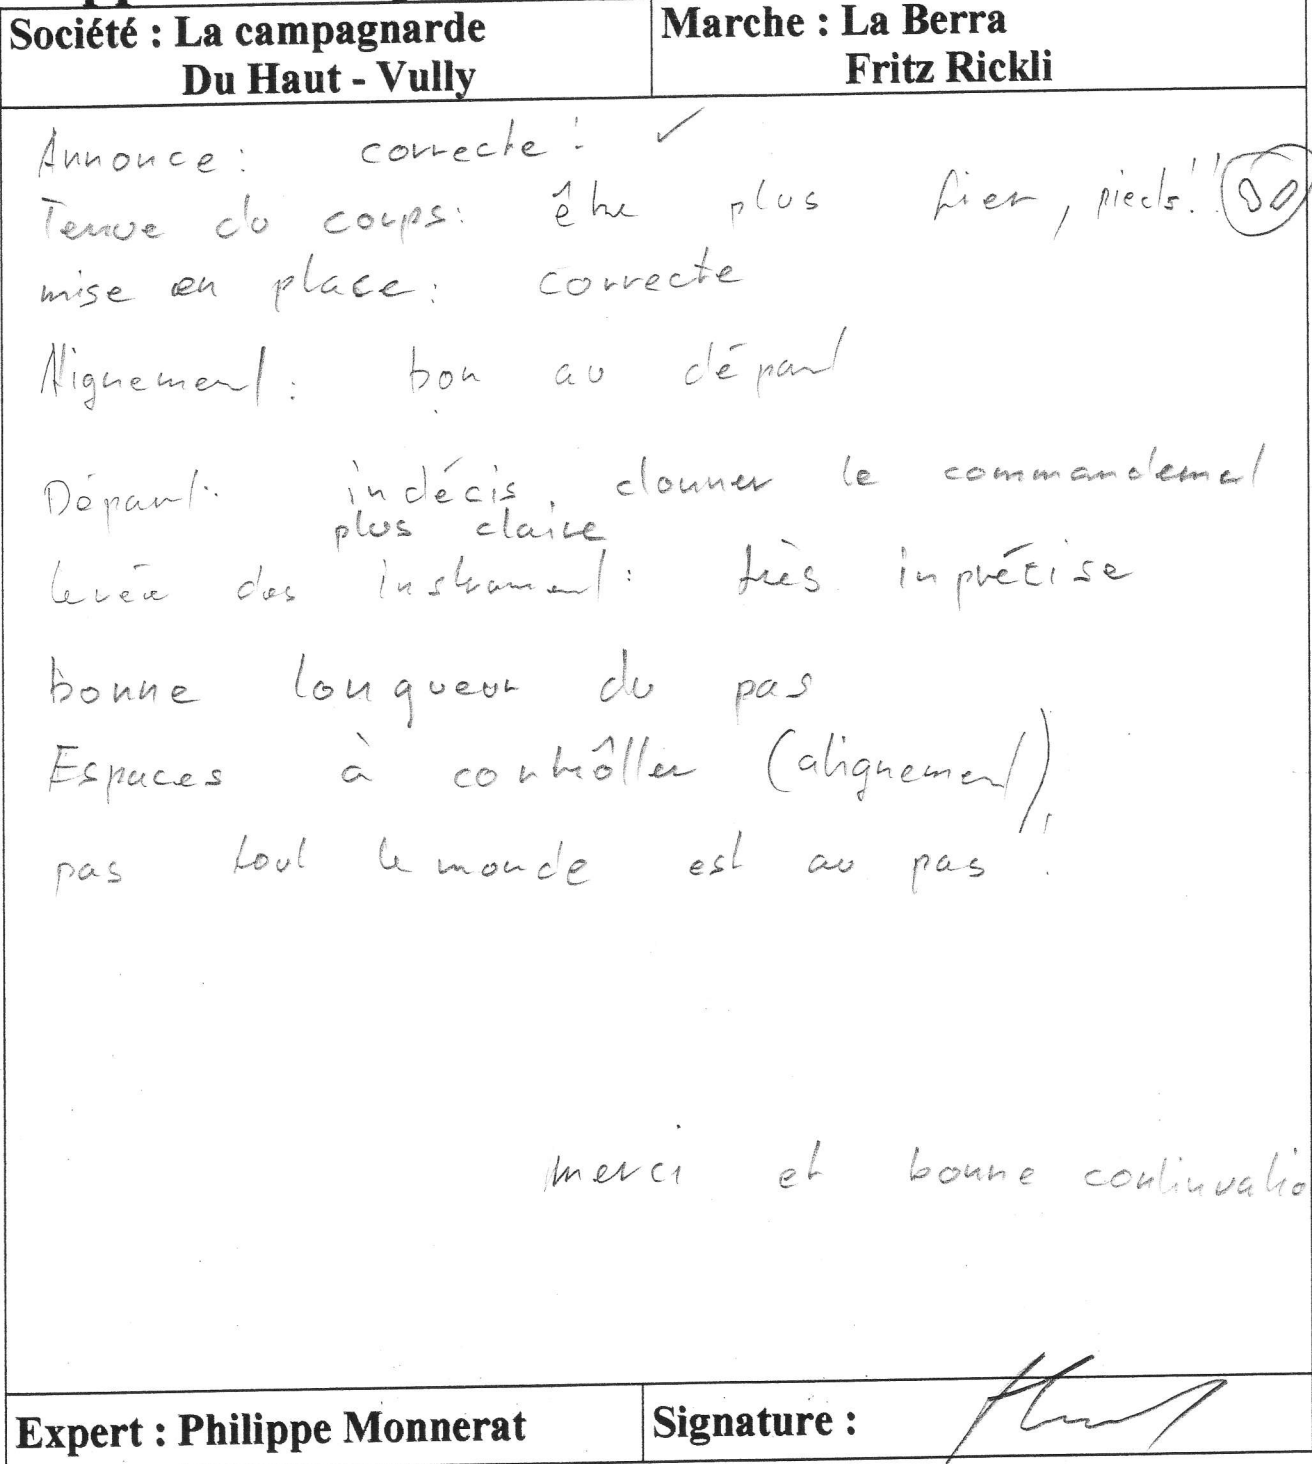 Société : La campagnarde
Du Haut - Vully
Marche : La Berra
Fritz Rickli
Annonce : correcte !
Tenue du corps : être plus fier, pieds !!
mise en place : correcte
Alignement : bon au départ
Départ : indécis, donner le commandement
plus claire
levée des instrument : très inprécise
bonne longueur du pas
Espaces à contrôller (alignement),
pas tout le monde est au pas.
merci et bonne continuatio
Expert : Philippe Monnerat
Signature :